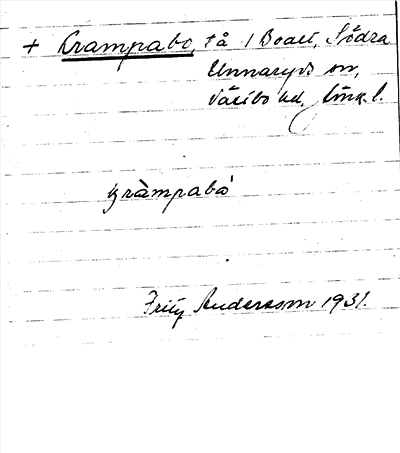 + Krampabo, tå / Boalt, Södra
Unnaryds sn,
Västbo hd, Jönk. l.
kràmpabò
Fritz Andersson 1931.